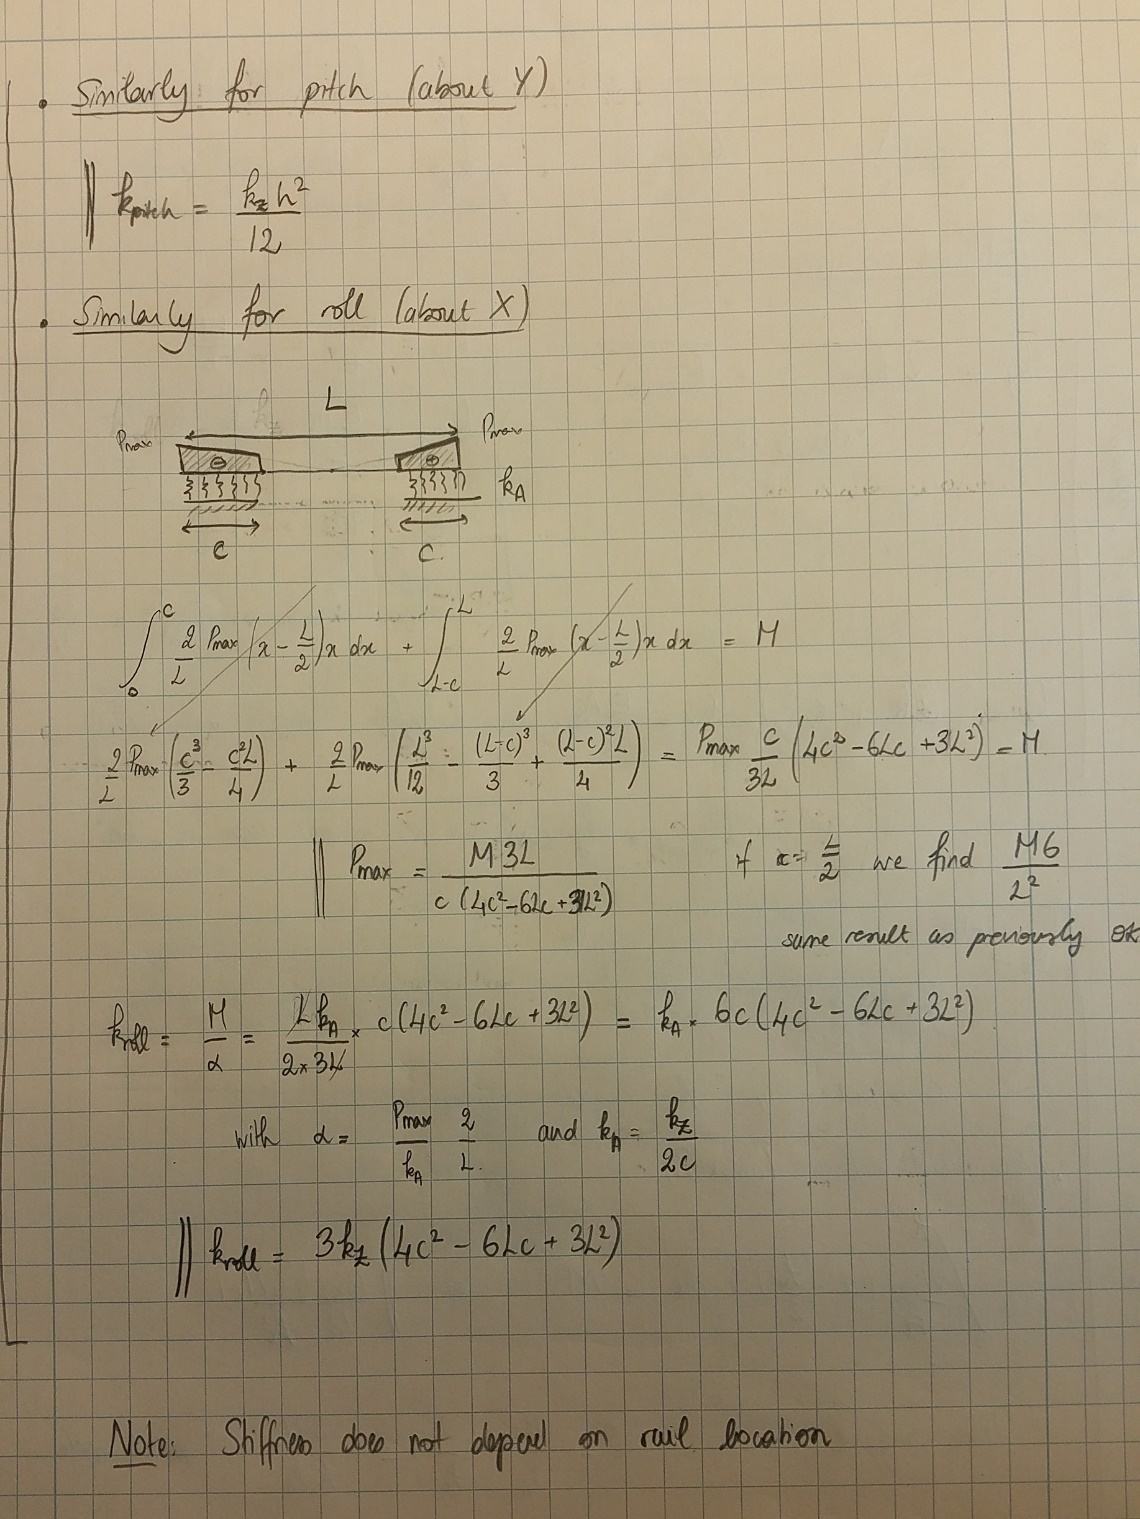 • Similarly for pitch (about Y)
k_pitch = k_z h² / 12
• Similarly for roll (about X)
L
Pmax Pmax
⊖ ⊕
k_A
c c
∫₀^c 2/L Pmax (x - L/2) x dx + ∫_{L-c}^L 2/L Pmax (x - L/2) x dx = M
2/L Pmax (c³/3 - c²L/4) + 2/L Pmax (L³/12 - (L-c)³/3 + (L-c)²L/4) = Pmax c/3L (4c² - 6Lc + 3L²) = M
Pmax = M 3L / c (4c² - 6Lc + 3L²) if c = L/2 we find M6 / L²
same result as previously ok
k_roll = M/α = L k_A / 2 × 3L × c (4c² - 6Lc + 3L²) = k_A × 6c (4c² - 6Lc + 3L²)
with α = Pmax/k_A 2/L and k_A = k_z / 2c
k_roll = 3k_z (4c² - 6Lc + 3L²)
Note: Stiffness does not depend on rail location